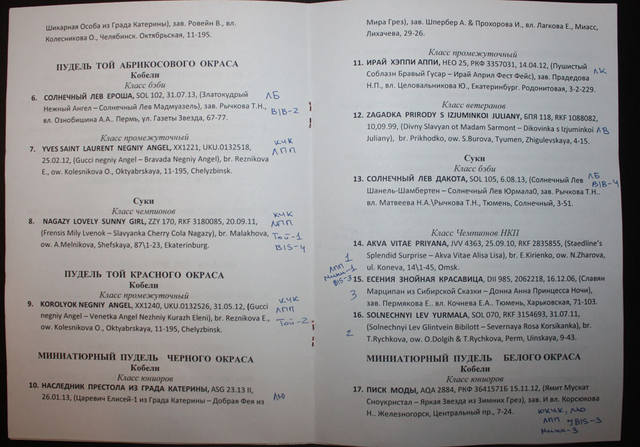 Шикарная Особа из Града Катерины), зав. Ровейн В., вл.
Колесникова О., Челябинск. Октябрьская, 11-195.
ПУДЕЛЬ ТОЙ АБРИКОСОВОГО ОКРАСА
Кобели
Класс бэби
6. СОЛНЕЧНЫЙ ЛЕВ ЕРОША, SOL 102, 31.07.13, (Златокудрый ЛБ
Нежный Ангел – Солнечный Лев Мадмуазель), зав. Рычкова Т.Н., BIB-2
вл. Ознобишина А.А., Пермь, ул. Газеты Звезда, 67-77.
Класс промежуточный КЧК
7. YVES SAINT LAURENT NEGNIY ANGEL, XX1221, UKU.0132518, ЛПП
25.02.12, (Gucci negniy Angel – Bravada Negniy Angel), br. Reznikova
E., ow. Kolesnikova O., Oktyabrskaya, 11-195, Chelyzbinsk.
Суки
Класс чемпионов КЧК
8. NAGAZY LOVELY SUNNY GIRL, ZZY 170, RKF 3180085, 20.09.11, ЛПП
(Frensis Mily Lvenok – Slavyanka Cherry Cola Nagazy), br. Malakhova, Той-1
ow. A.Melnikova, Shefskaya, 87\1-23, Ekaterinburg. BIS-4
ПУДЕЛЬ ТОЙ КРАСНОГО ОКРАСА
Кобели
Класс промежуточный КЧК
9. KOROLYOK NEGNIY ANGEL, XX1240, UKU.0132526, 31.05.12, (Gucci ЛПП
negniy Angel – Venetka Angel Nezhniy Kurazh Eleni), br. Reznikova E., Той-2
ow. Kolesnikova O., Oktyabrskaya, 11-195, Chelyzbinsk.
МИНИАТЮРНЫЙ ПУДЕЛЬ ЧЕРНОГО ОКРАСА
Кобели
Класс юниоров
10. НАСЛЕДНИК ПРЕСТОЛА ИЗ ГРАДА КАТЕРИНЫ, ASG 23.13 II,
26.01.13, (Царевич Елисей-1 из Града Катерины – Добрая Фея из ЛЮ
Мира Грез), зав. Шпербер А. & Прохорова И., вл. Лагкова Е., Миасс,
Лихачева, 29-26.
Класс промежуточный
11. ИРАЙ ХЭППИ АППИ, НЕО 25, РКФ 3357031, 14.04.12, (Пушистый ЛК
Соблазн Бравый Гусар – Ирай Април Фест Фейс), зав. Прададова
Н.П., вл. Целовальникова Ю., Екатеринбург. Родонитовая, 3-2-229.
Класс ветеранов
12. ZAGADKA PRIRODY S IZJUMINKOI JULIANY, БПЯ 118, RKF 1088082,
10,09.99, (Divny Slavyan ot Madam Sarmont – Dikovinka s Izjuminkoi ЛВ
Juliany), br. Prikhodko, ow. S.Burova, Tyumen, Zhigulevskaya, 4-15.
Суки
Класс бэби
13. СОЛНЕЧНЫЙ ЛЕВ ДАКОТА, SOL 105, 6.08.13, (Солнечный Лев ЛБ
Шанель-Шамбертен – Солнечный Лев Юрмала0, зав. Рычкова Т.Н.. BIB-4
вл. Матвеева Н.А.\Рычкова Т.Н., Тюмень, Солнечный, 3-51.
Класс Чемпионов НКП
14. AKVA VITAE PRIYANA, JVV 4363, 25.09.10, RKF 2835855, (Staedline's 1
Splendid Surprise – Akva Vitae Alisa Lisa), br. E.Kirienko, ow. N.Zharova, ЛПП
ul. Koneva, 14\1-45, Omsk. Мини-1
BIS-3
15. ЕСЕНИЯ ЗНОЙНАЯ КРАСАВИЦА, DII 985, 2062218, 16.12.06, (Славян
3 Марципан из Сибирской Сказки – Донна Анна Принцесса Ночи),
зав. Пермякова Е. вл. Кочнева Е.А., Тюмень, Харьковская, 71-103.
16. SOLNECHNYI LEV YURMALA, SOL 070, RKF 3154693, 31.07.11,
2 (Solnechnyi Lev Glintvein Bibilott – Severnaya Rosa Korsikanka), br.
T.Rychkova, ow. O.Dolgih & T.Rychkova, Perm, Uinskaya, 9-43.
МИНИАТЮРНЫЙ ПУДЕЛЬ БЕЛОГО ОКРАСА
Кобели
Класс юниоров
17. ПИСК МОДЫ, AQA 2884, РКФ 3641571б 15.11.12, (Ямит Мускат
Сноукристал – Яркая Звезда из Зимних Грез), зав. И вл. Корсюкова
Н., Железногорск, Центральный пр., 7-24. КЮЧК, ЛЮ
ЛПП JBIS-3
Мини-3